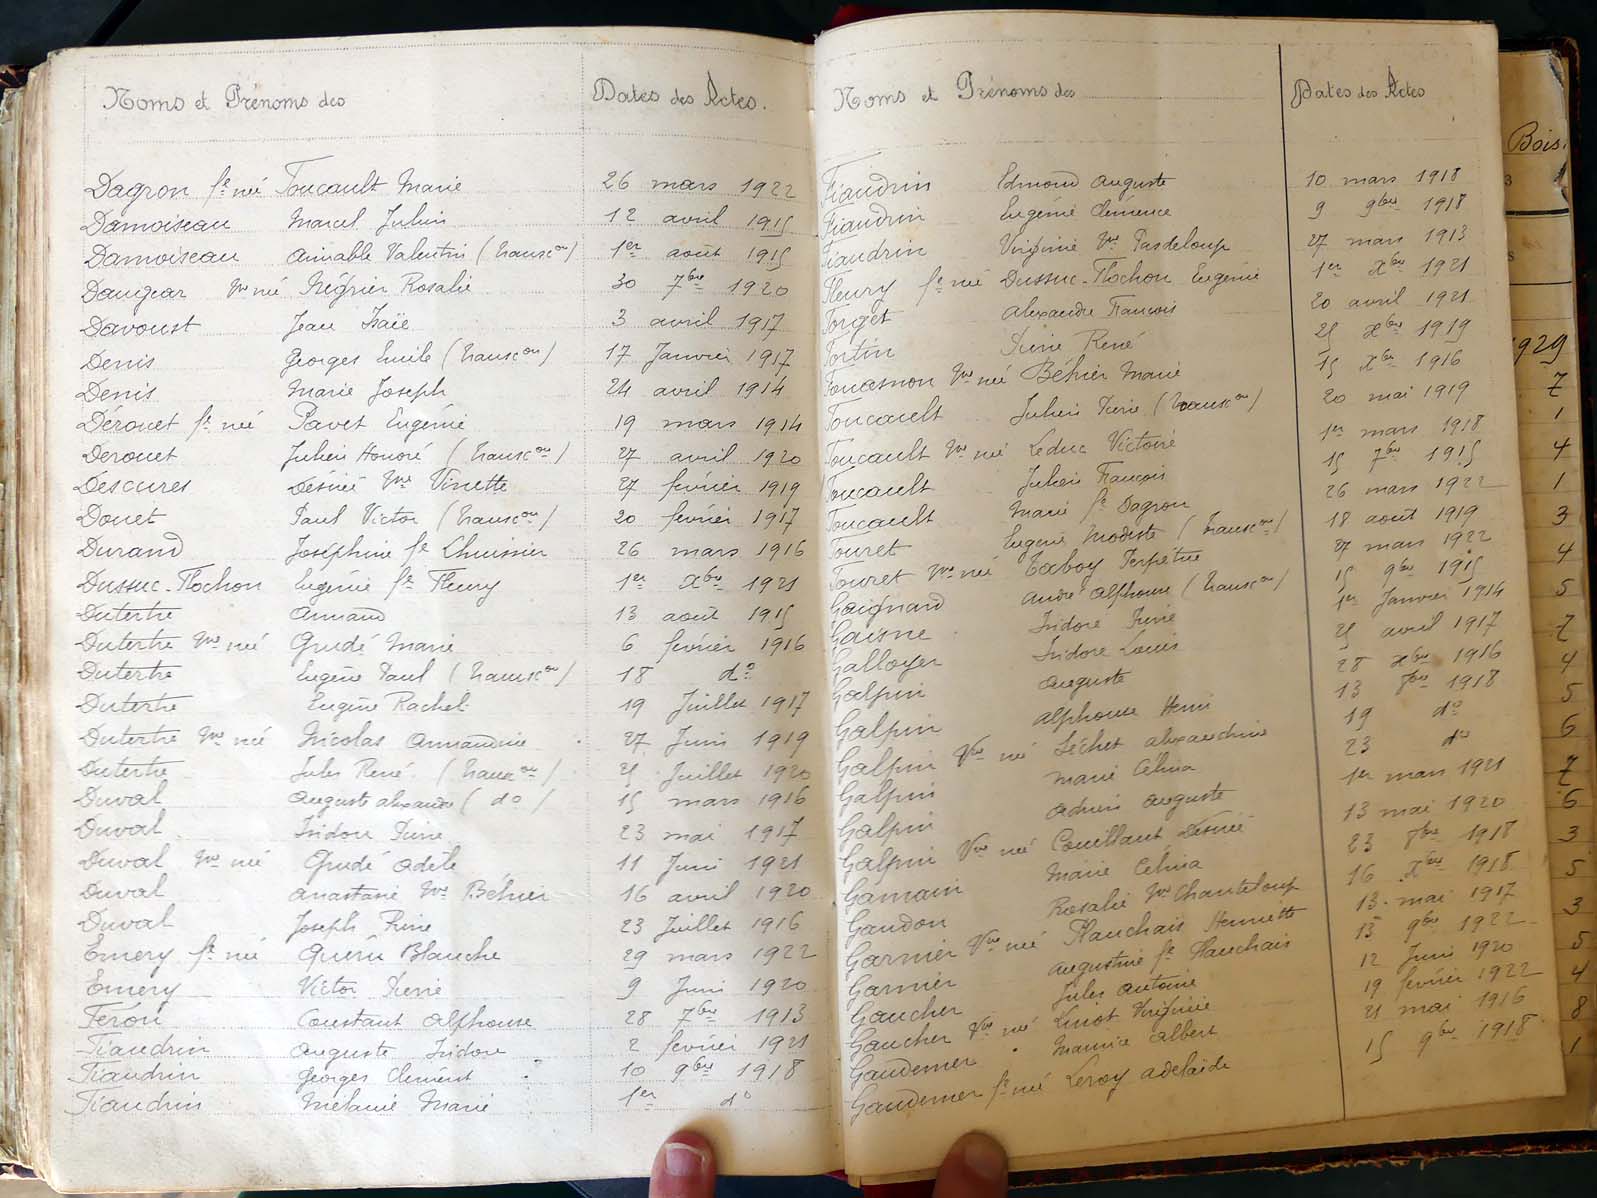 Noms et Prénoms des Dates des Actes.
Dagron fe née Foucault Marie 26 mars 1922
Damoiseau Marcel Julien 12 avril 1915
Damoiseau Aimable Valentin (transcon) 1er août 1915
Daugear Vve née Négrier Rosalie 30 7bre 1920
Davoust Jean Isaïe 3 avril 1917
Denis Georges Emile (transcon) 17 Janvier 1917
Denis Marie Joseph 24 avril 1914
Dérouet fe née Pavet Eugénie 19 mars 1914
Derouet Julien Honoré (transcon) 27 avril 1920
Descures Désirée Vve Vinette 27 février 1919
Douet Paul Victor (transcon) 20 février 1917
Durand Joséphine fe Lhuissier 26 mars 1916
Dussuc-Flochon Eugénie fe Fleury 1er Xbre 1921
Dutertre Armand 13 août 1915
Dutertre Vve née Grudé Marie 6 février 1916
Dutertre Eugène Paul (transcon) 18 do
Dutertre Eugène Rachel 19 Juillet 1917
Dutertre Vve née Nicolas Armandine 27 Juin 1919
Dutertre Jules René (transcon) 21 Juillet 1920
Duval Auguste Alexandre (do) 15 mars 1916
Duval Isidore Pierre 23 mai 1917
Duval Vve née Grudé Adèle 11 Juin 1921
Duval Anastasie Vve Béhier 16 avril 1920
Duval Joseph Pierre 23 Juillet 1916
Emery fe née Guérin Blanche 29 mars 1922
Emery Victor Pierre 9 Juin 1920
Feron Constant Alphonse 28 7bre 1913
Fiaudrin Auguste Isidore 2 février 1921
Fiaudrin Georges Clément 10 9bre 1918
Fiaudrin Mélanie Marie 1er do
Noms et Prénoms des Dates des Actes
Fiaudrin Edmond Auguste 10 mars 1918
Fiaudrin Eugénie Clémence 9 9bre 1918
Fiaudrin Virginie Vve Pasdeloup 27 mars 1913
Fleury fe née Dussuc-Flochon Eugénie 1er Xbre 1921
Forget Alexandre François 20 avril 1921
Fortin Pierre René 21 Xbre 1919
Fouasnon Vve née Béhier Marie 15 Xbre 1916
Foucault Julien Pierre (transcon) 20 mai 1919
Foucault Vve née Leduc Victoire 1er mars 1918
Foucault Julien François 15 7bre 1915
Foucault Marie fe Dagron 26 mars 1922
Fouret Eugène Modeste (transcon) 18 août 1919
Fouret Vve née Perpétue 27 mars 1922
Gaignard André Alphonse (transcon) 15 9bre 1915
Gaisne Isidore Pierre 1er Janvier 1914
Galloyer Isidore Louis 21 avril 1917
Galpin Auguste 28 Xbre 1916
Galpin Alphonse Henri 13 8bre 1918
Galpin Vve née Séchet Alexandrine 19 do
Galpin Marie Célina 23 do
Galpin Adrien Auguste 1er mars 1921
Galpin Vve née Couillaut Désirée 13 mai 1920
Gamain Marie Célina 23 8bre 1918
Gaudon Rosalie Vve Chanteloup 16 Xbre 1918
Garnier Vve née Flauchais Henriette 13 mai 1917
Garnier Augustine fe Flauchais 15 9bre 1922
Gaucher Jules Antoine 12 Juin 1920
Gaucher Vve née Linot Virginie 19 février 1922
Gaudemer Maurice Albert 21 mai 1916
Gaudemer fe née Leroy Adelaïde 15 9bre 1918
Bois.
1929
7
1
4
1
3
4
5
7
4
5
6
7
6
3
5
3
5
4
8
1